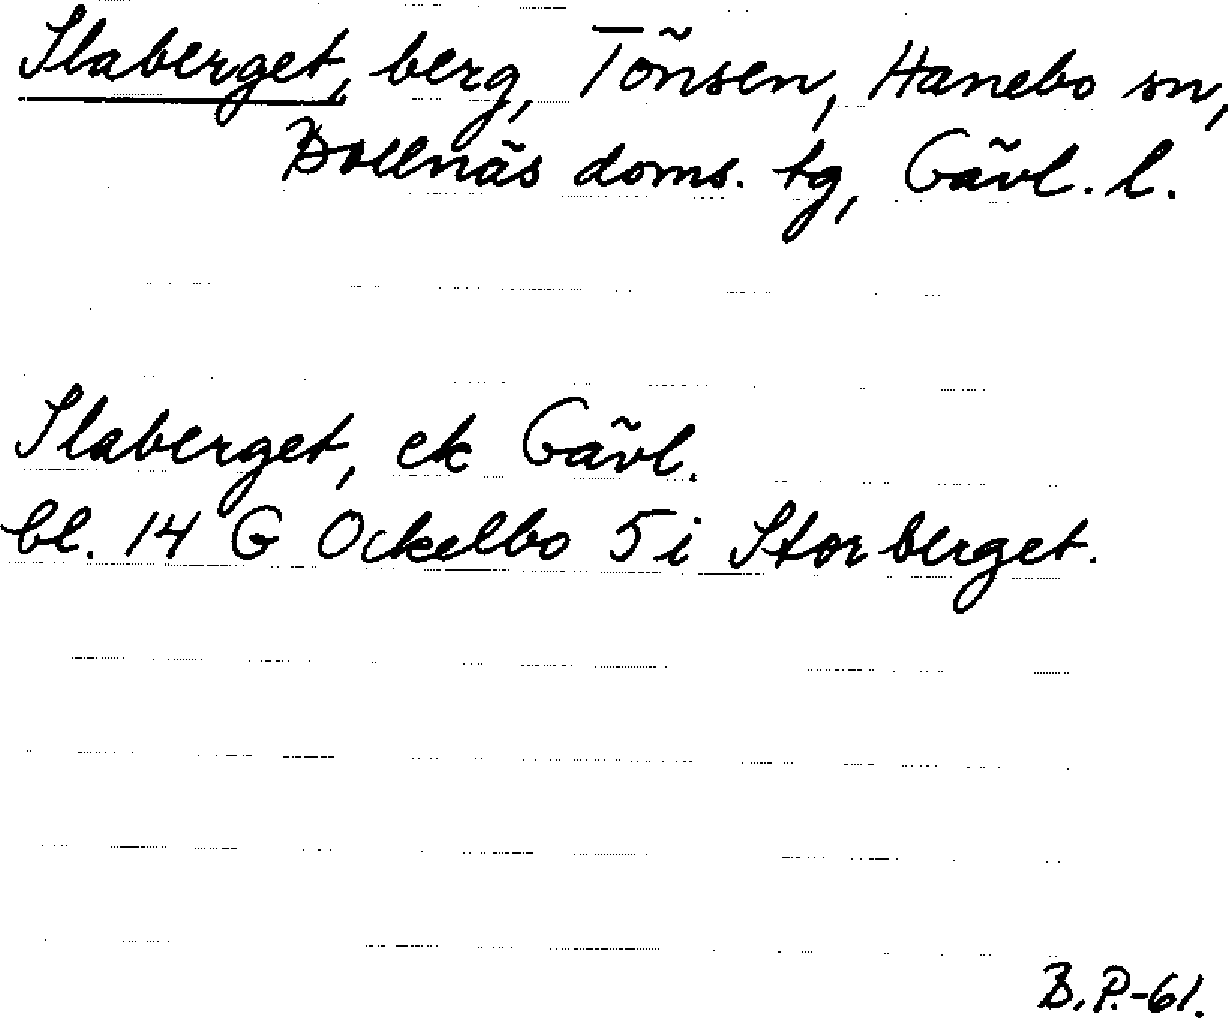 Slaberget, berg, Tönsen, Hanebo sn,
Bollnäs doms. tg, Gävl. l.
Slaberget, ek Gävl.
bl. 14 G Ockelbo 5 i Storberget.
B.P.-61.